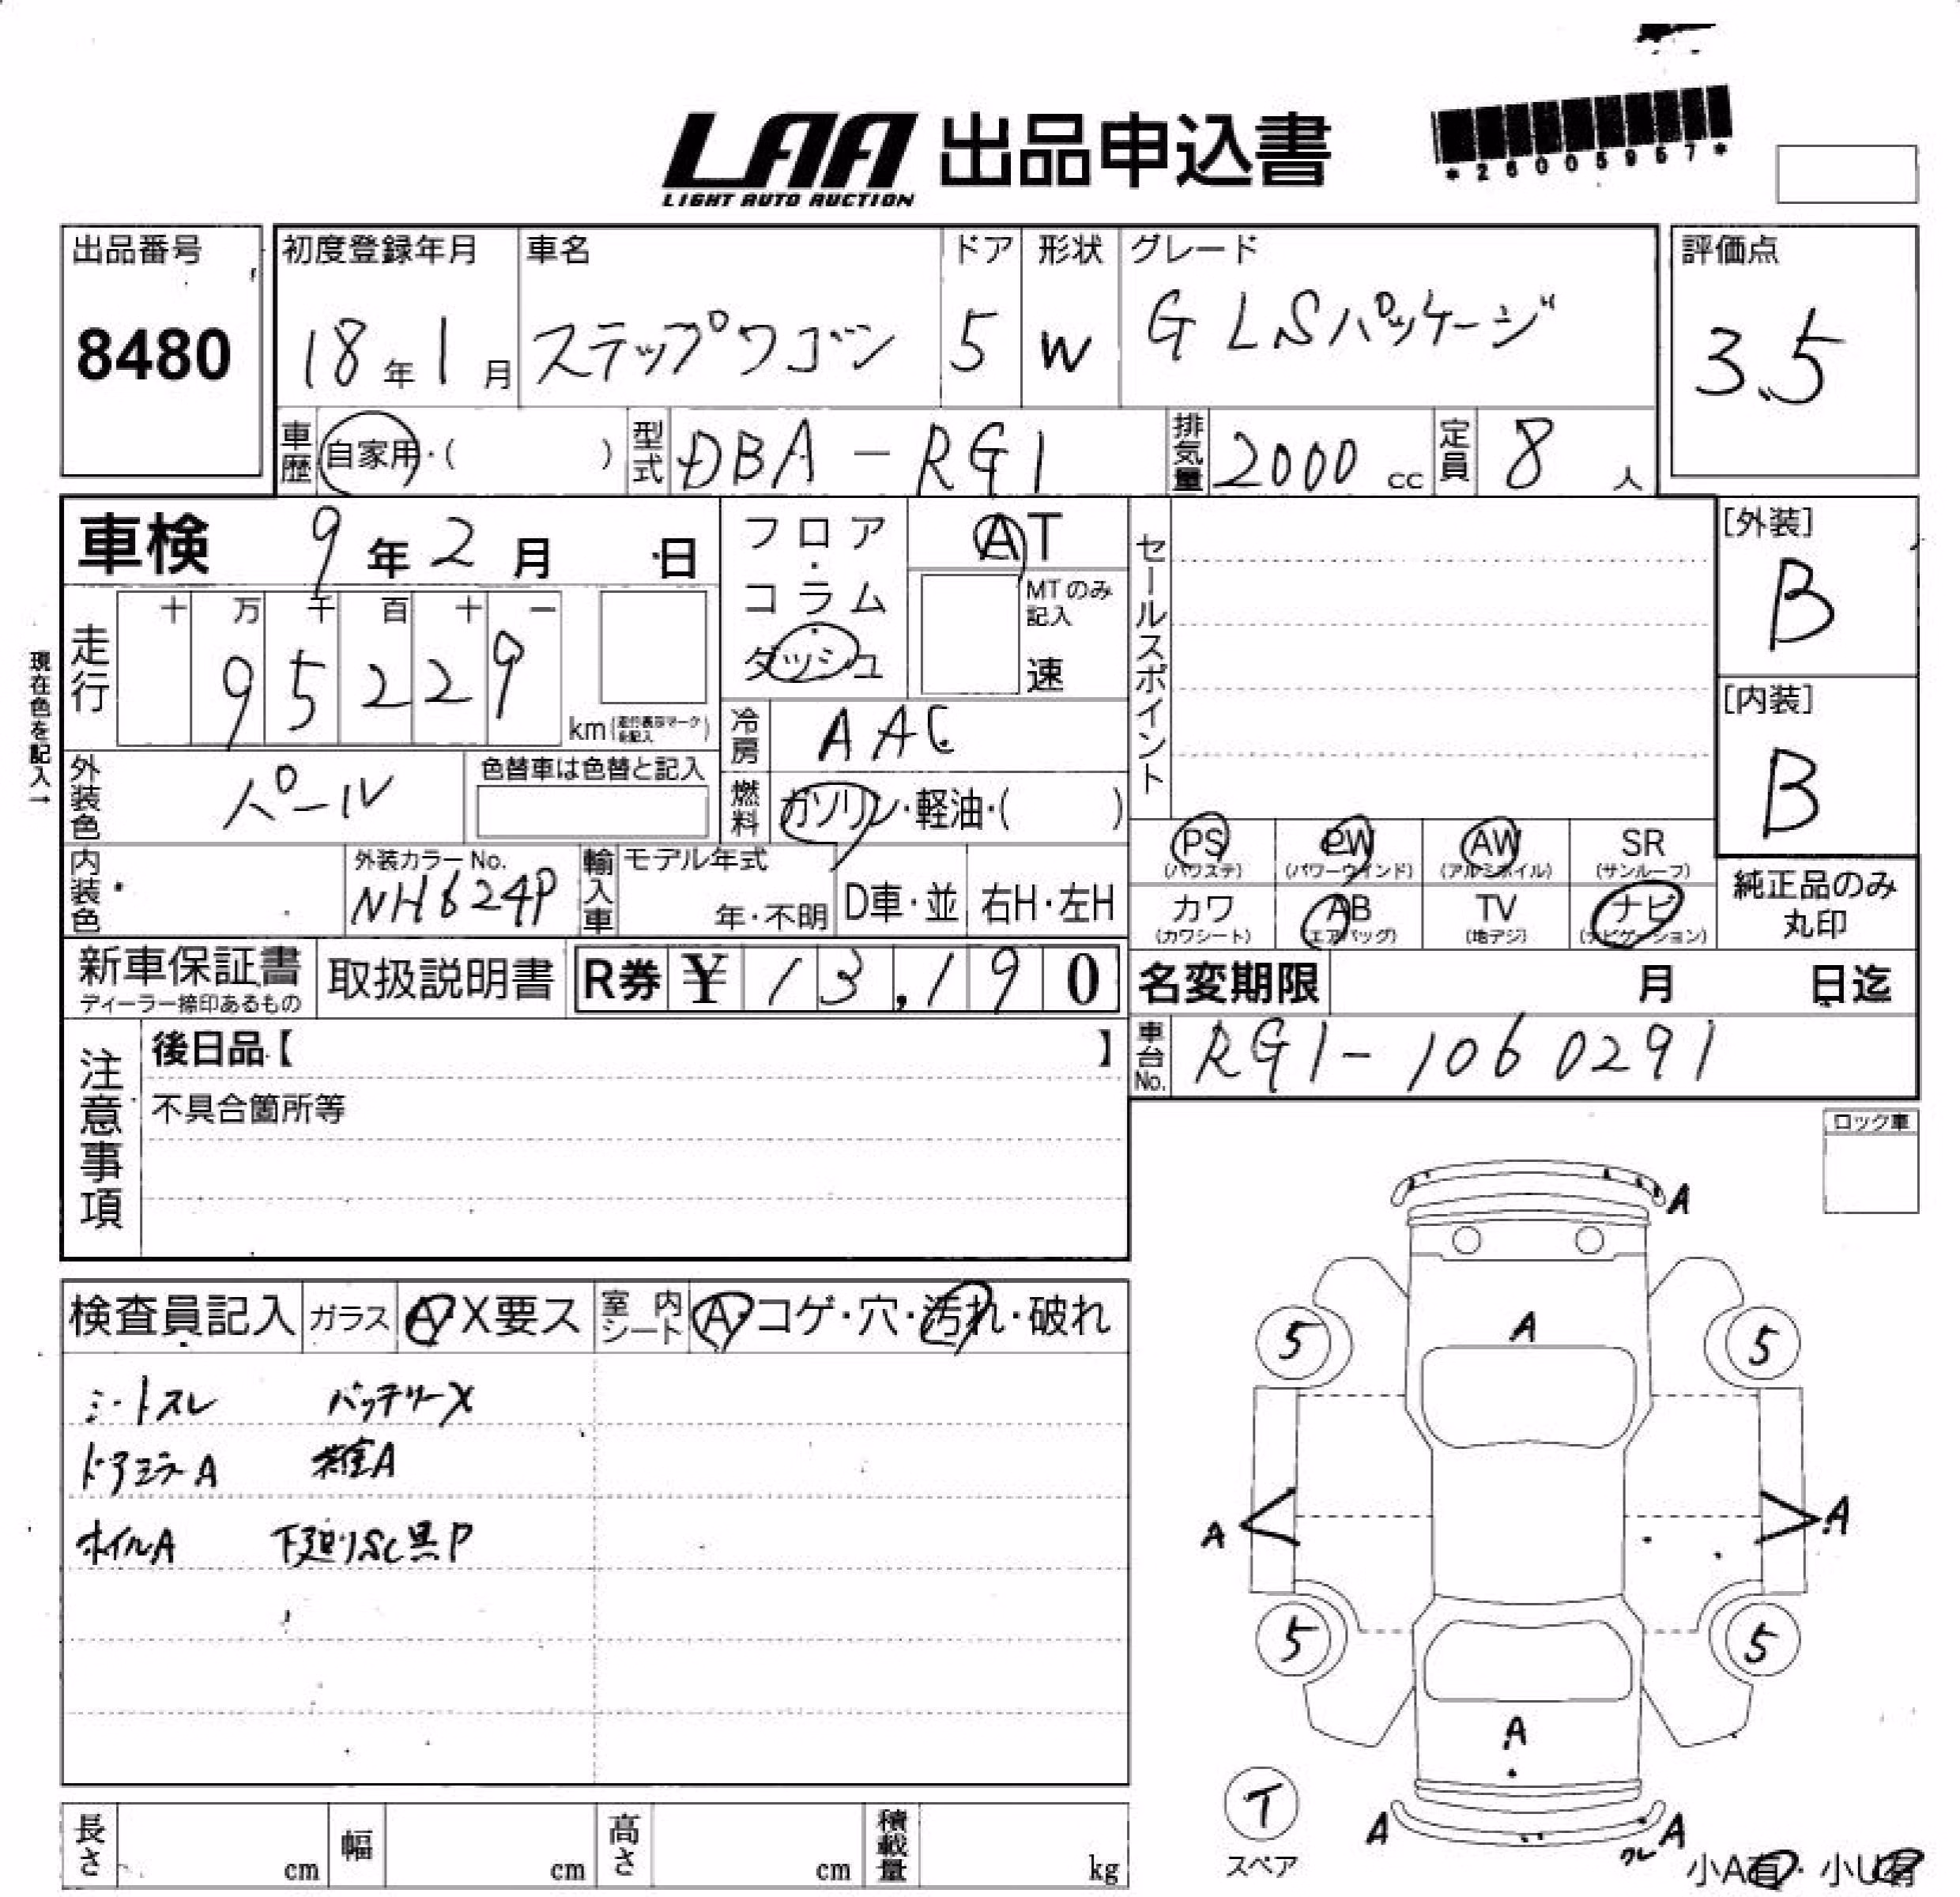 LAA 出品申込書
LIGHT AUTO AUCTION
*26005957*
出品番号
8480
初度登録年月
18年1月
車名
ステップワゴン
ドア
5
形状
W
グレード
G LSパッケージ
評価点
3.5
車歴
自家用・( )
型式
DBA-RG1
排気量
2000cc
定員
8人
車検 9年2月 日
フロア・コラム・ダッシュ
AT
MTのみ記入
速
セールスポイント
[外装]
B
[内装]
B
現在色を記入→
走行
十万千百十一
95229
km(走行表示マークを記入)
冷房
AAC
燃料
ガソリン・軽油・( )
外装色
パール
色替車は色替と記入
内装色
外装カラーNo.
NH624P
輸入車
モデル年式
年・不明
D車・並
右H・左H
PS
(パワステ)
PW
(パワーウインド)
AW
(アルミホイル)
SR
(サンルーフ)
カワ
(カワシート)
AB
(エアバッグ)
TV
(地デジ)
ナビ
(ナビゲーション)
純正品のみ
丸印
新車保証書
ディーラー捺印あるもの
取扱説明書
R券 ¥13,190
名変期限 月 日迄
車台No.
RG1-1060291
注意事項
後日品【 】
不具合箇所等
ロック車
検査員記入
ガラス
A X要ス
室内シート
A・コゲ・穴・汚れ・破れ
シートスレ バッテリーX
ドアミラーA A
ホイルA 下廻りSC黒P
A
A
5
5
A
A
5
5
A
T
スペア
A
A
小A有・小U有
長さ
cm
幅
cm
高さ
cm
積載量
kg